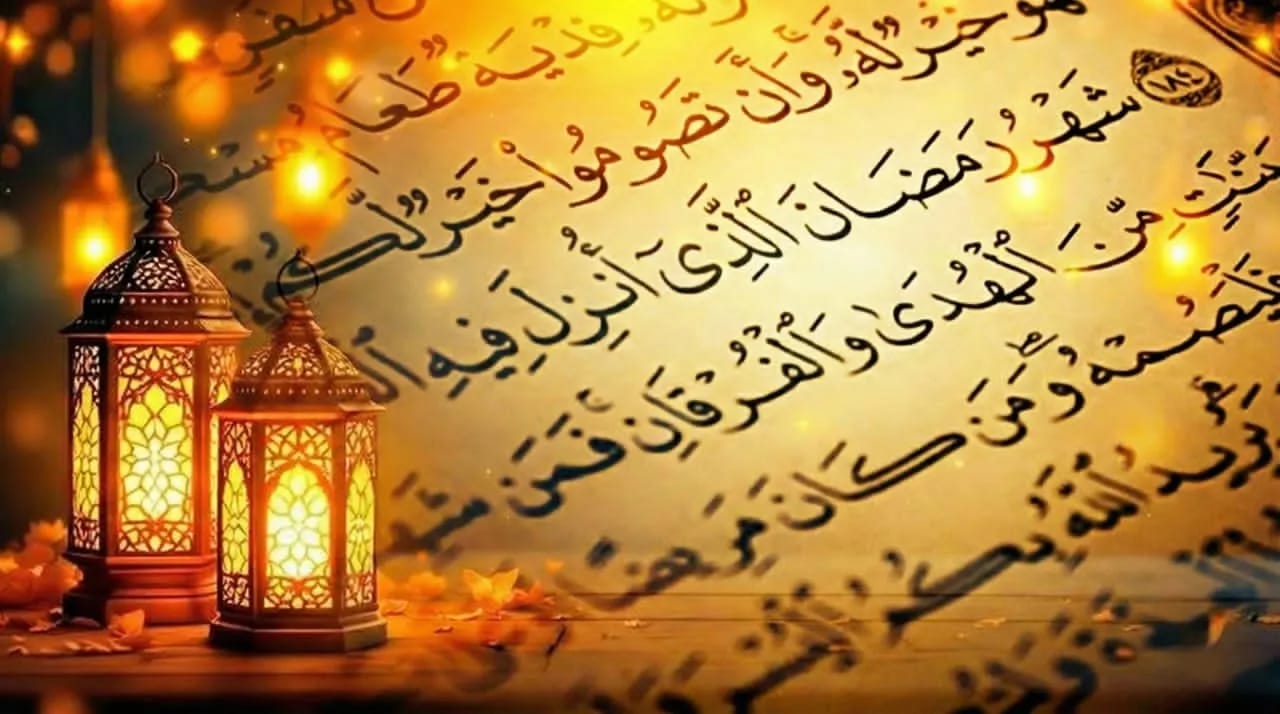 فِدْيَةٌ طَعَامُ
هُوَ خَيْرٌ لَّهُۥ وَأَن تَصُومُوا۟ خَيْرٌ لَّكُمْ
١٨٤ شَهْرُ رَمَضَانَ ٱلَّذِىٓ أُنزِلَ فِيهِ
مِّنَ ٱلْهُدَىٰ وَٱلْفُرْقَانِ ۚ فَمَن
فَلْيَصُمْهُ ۖ وَمَن كَانَ مَرِيضًا
يُرِيدُ ٱللَّهُ بِكُمُ ٱلْيُسْرَ